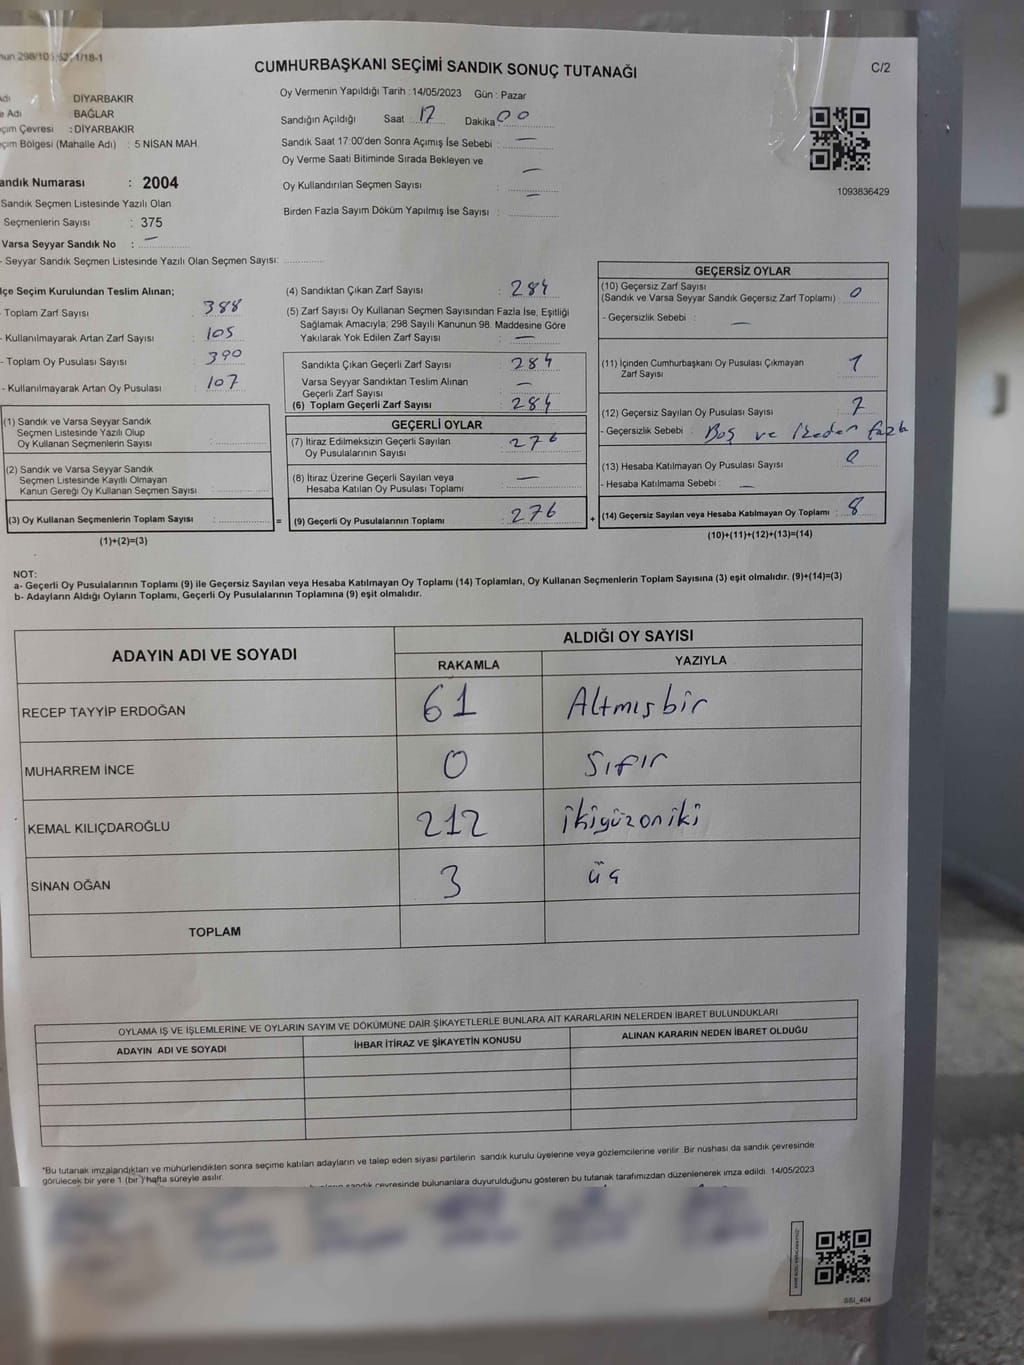 298/10
/18-1
CUMHURBAŞKANI SEÇİMİ SANDIK SONUÇ TUTANAĞI
C/2
DİYARBAKIR
Adı : BAĞLAR
Çevresi : DİYARBAKIR
Bölgesi (Mahalle Adı) : 5 NİSAN MAH.
Oy Vermenin Yapıldığı Tarih : 14/05/2023 Gün : Pazar
Sandığın Açıldığı Saat : 17 Dakika 00
Sandık Saat 17:00'den Sonra Açımış İse Sebebi : —
Oy Verme Saati Bitiminde Sırada Bekleyen ve
Oy Kullandırılan Seçmen Sayısı : —
Birden Fazla Sayım Döküm Yapılmış İse Sayısı : —
1093836429
andık Numarası : 2004
Sandık Seçmen Listesinde Yazılı Olan
Seçmenlerin Sayısı : 375
Varsa Seyyar Sandık No : —
- Seyyar Sandık Seçmen Listesinde Yazılı Olan Seçmen Sayısı:
lçe Seçim Kurulundan Teslim Alınan;
- Toplam Zarf Sayısı : 388
- Kullanılmayarak Artan Zarf Sayısı : 105
- Toplam Oy Pusulası Sayısı : 390
- Kullanılmayarak Artan Oy Pusulası : 107
(1) Sandık ve Varsa Seyyar Sandık
Seçmen Listesinde Yazılı Olup
Oy Kullanan Seçmenlerin Sayısı :
(2) Sandık ve Varsa Seyyar Sandık
Seçmen Listesinde Kayıtlı Olmayan
Kanun Gereği Oy Kullanan Seçmen Sayısı :
(3) Oy Kullanan Seçmenlerin Toplam Sayısı :
=
(1)+(2)=(3)
(4) Sandıktan Çıkan Zarf Sayısı : 284
(5) Zarf Sayısı Oy Kullanan Seçmen Sayısından Fazla İse, Eşitliği
Sağlamak Amacıyla; 298 Sayılı Kanunun 98. Maddesine Göre
Yakılarak Yok Edilen Zarf Sayısı : —
Sandıkta Çıkan Geçerli Zarf Sayısı : 284
Varsa Seyyar Sandıktan Teslim Alınan
Geçerli Zarf Sayısı : —
(6) Toplam Geçerli Zarf Sayısı : 284
GEÇERLİ OYLAR
(7) İtiraz Edilmeksizin Geçerli Sayılan
Oy Pusulalarının Sayısı : 276
(8) İtiraz Üzerine Geçerli Sayılan veya
Hesaba Katılan Oy Pusulası Toplamı : —
(9) Geçerli Oy Pusulalarının Toplamı : 276
+
GEÇERSİZ OYLAR
(10) Geçersiz Zarf Sayısı
(Sandık ve Varsa Seyyar Sandık Geçersiz Zarf Toplamı) : 0
- Geçersizlik Sebebi : —
(11) İçinden Cumhurbaşkanı Oy Pusulası Çıkmayan
Zarf Sayısı : 1
(12) Geçersiz Sayılan Oy Pusulası Sayısı : 7
- Geçersizlik Sebebi : Boş ve fazla
(13) Hesaba Katılmayan Oy Pusulası Sayısı : 0
- Hesaba Katılmama Sebebi : —
(14) Geçersiz Sayılan veya Hesaba Katılmayan Oy Toplamı : 8
(10)+(11)+(12)+(13)=(14)
NOT:
a- Geçerli Oy Pusulalarının Toplamı (9) ile Geçersiz Sayılan veya Hesaba Katılmayan Oy Toplamı (14) Toplamları, Oy Kullanan Seçmenlerin Toplam Sayısına (3) eşit olmalıdır. (9)+(14)=(3)
b- Adayların Aldığı Oyların Toplamı, Geçerli Oy Pusulalarının Toplamına (9) eşit olmalıdır.
ADAYIN ADI VE SOYADI
ALDIĞI OY SAYISI
RAKAMLA YAZIYLA
RECEP TAYYİP ERDOĞAN 61 Altmışbir
MUHARREM İNCE 0 Sıfır
KEMAL KILIÇDAROĞLU 212 ikiyüzoniki
SİNAN OĞAN 3 üç
TOPLAM
OYLAMA İŞ VE İŞLEMLERİNE VE OYLARIN SAYIM VE DÖKÜMÜNE DAİR ŞİKAYETLERLE BUNLARA AİT KARARLARIN NELERDEN İBARET BULUNDUKLARI
ADAYIN ADI VE SOYADI İHBAR İTİRAZ VE ŞİKAYETİN KONUSU ALINAN KARARIN NEDEN İBARET OLDUĞU
*Bu tutanak imzalandıktan ve mühürlendikten sonra seçime katılan adayların ve talep eden siyasi partilerin sandık kurulu üyelerine veya gözlemcilerine verilir. Bir nüshası da sandık çevresinde
görülecek bir yere 1 (bir) hafta süreyle asılır.
sandık çevresinde bulunanlara duyurulduğunu gösteren bu tutanak tarafımızdan düzenlenerek imza edildi. 14/05/2023
SSI_404